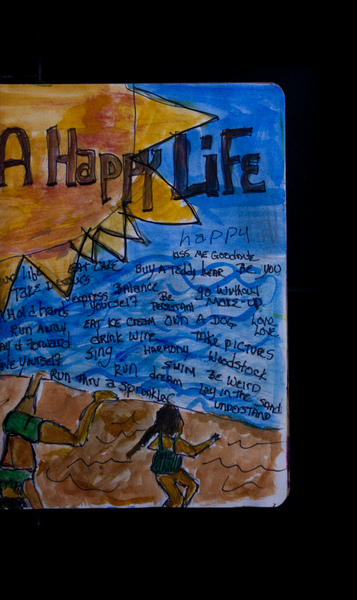 A Happy Life
happy
Kiss Me Goodnite
Eat Cake Buy A Teddy bear Be You
Take Balance go without
Express Be MAKE-UP
Hold hands yourself
Run Away, EAT ICE CREAM OWN A DOG LOVE
Forward drink wine take pictures LOVE
Yourself Sing HARMONY Woodstock
RUN SWIM BE WEIRD
Run thru a Sprinkler dream lay in the sand
UNDERSTAND